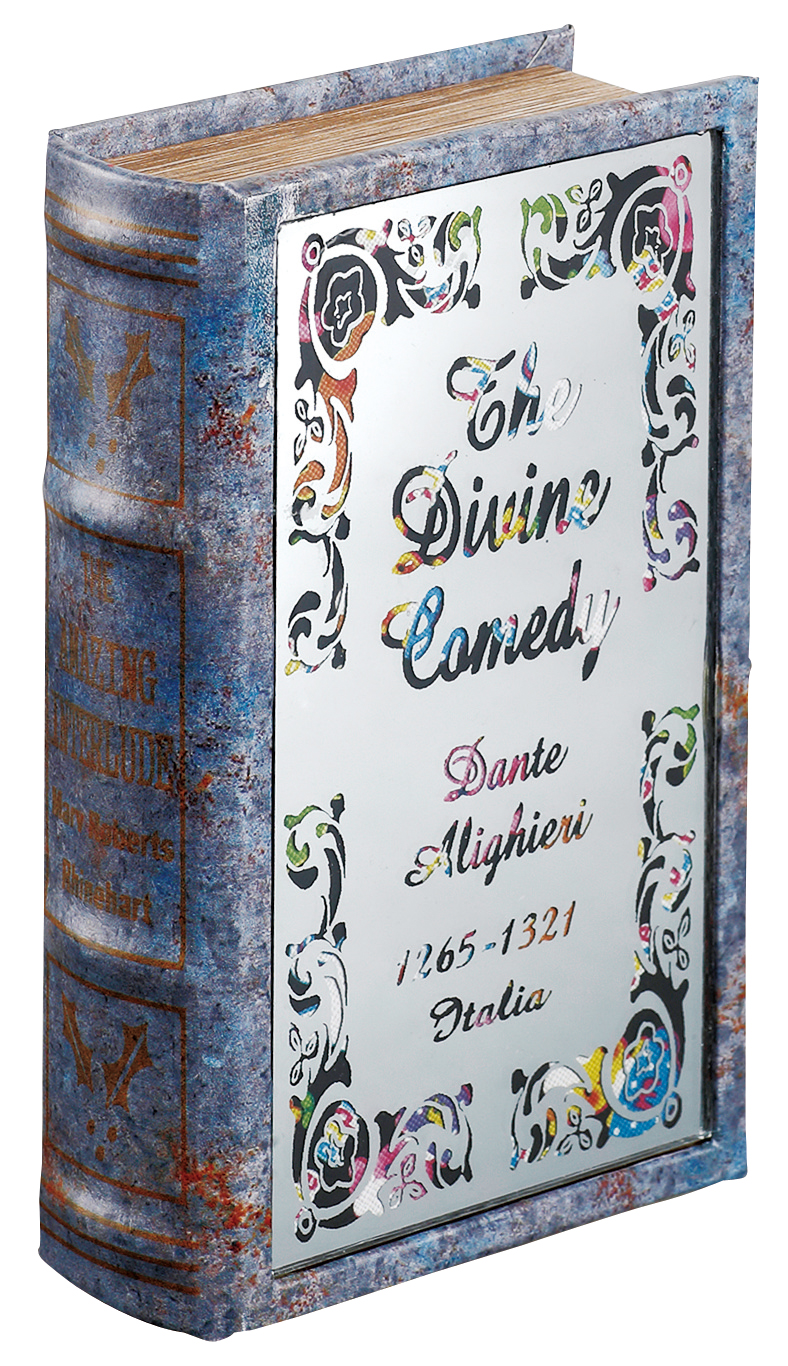 THE
AMAZING
INTERLUDE
Mary Roberts
Rhinehart
The
Divine
Comedy
Dante
Alighieri
1265-1321
Italia